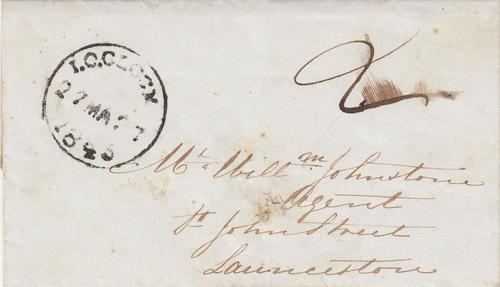 1.O.CLOCK
27 MA 27
1845
2
Mr. Willm Johnstone
Agent
St John Street
Launceston